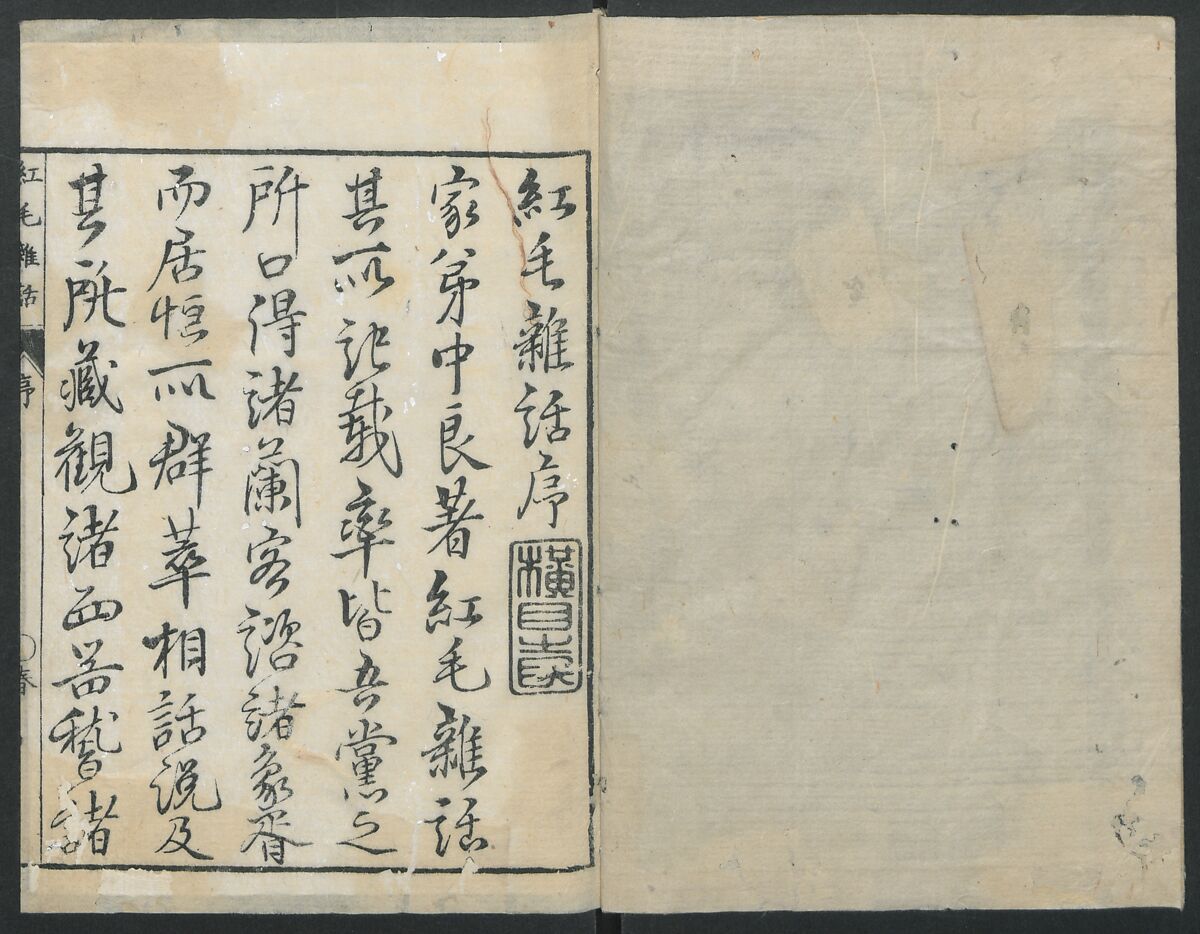 紅毛雜話序 橫目之民
家弟中良著紅毛雜話
其所記載率皆吾黨之
所口得諸蘭客諮諸象胥
而居恒所群萃相話說及
其所藏觀諸西器稽諸
紅毛雜話 序 春